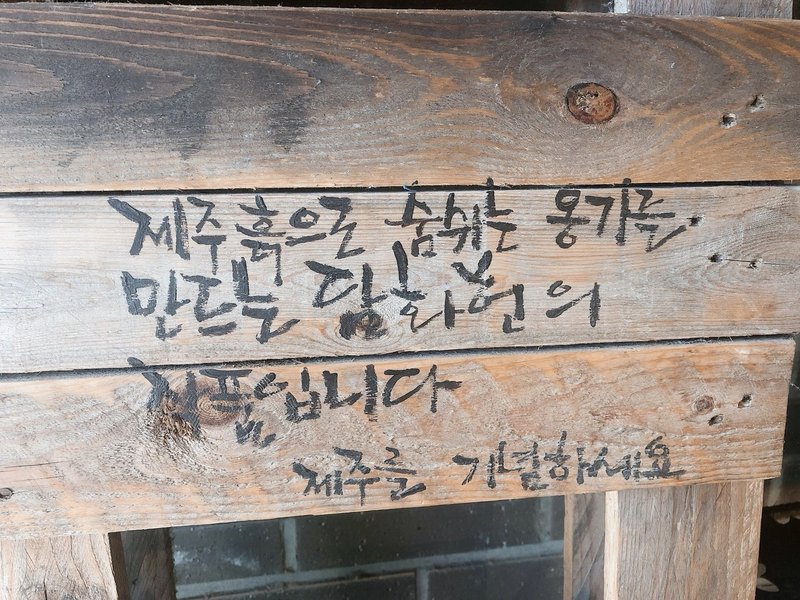 제주흙으로 숨쉬는 옹기를
만드는 담화헌의
작품입니다
제주를 기념하세요